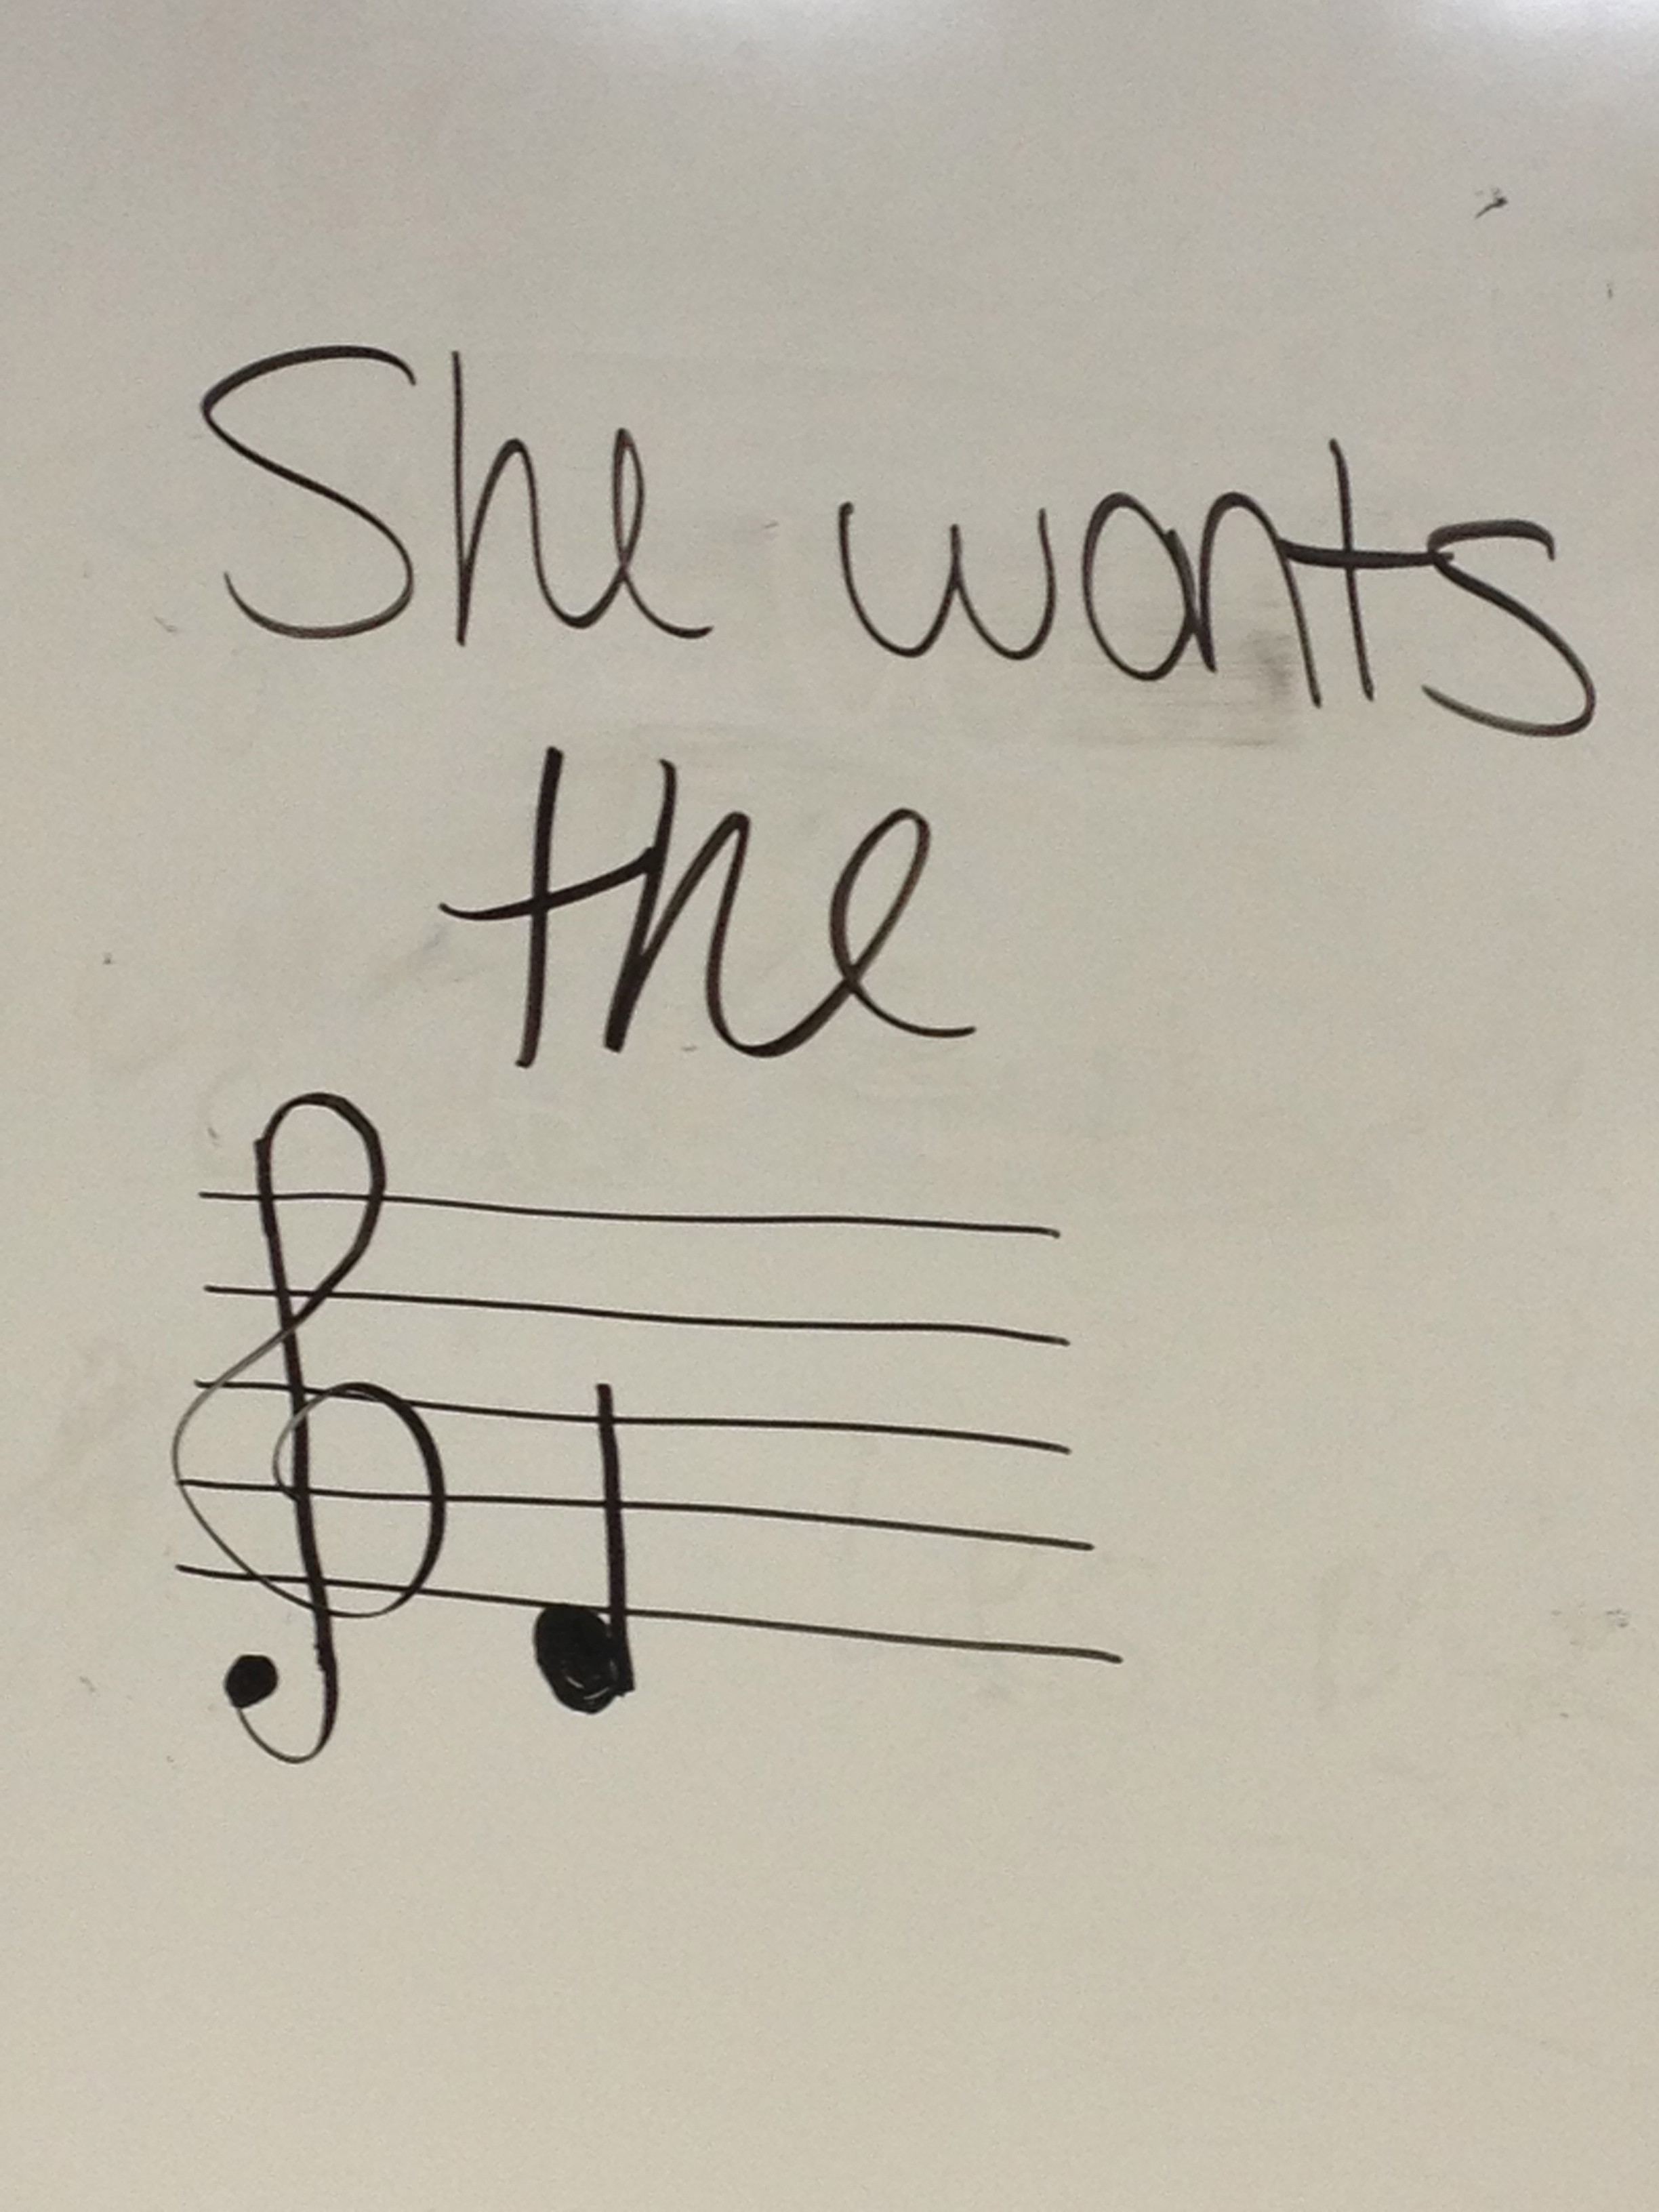 She wants
the